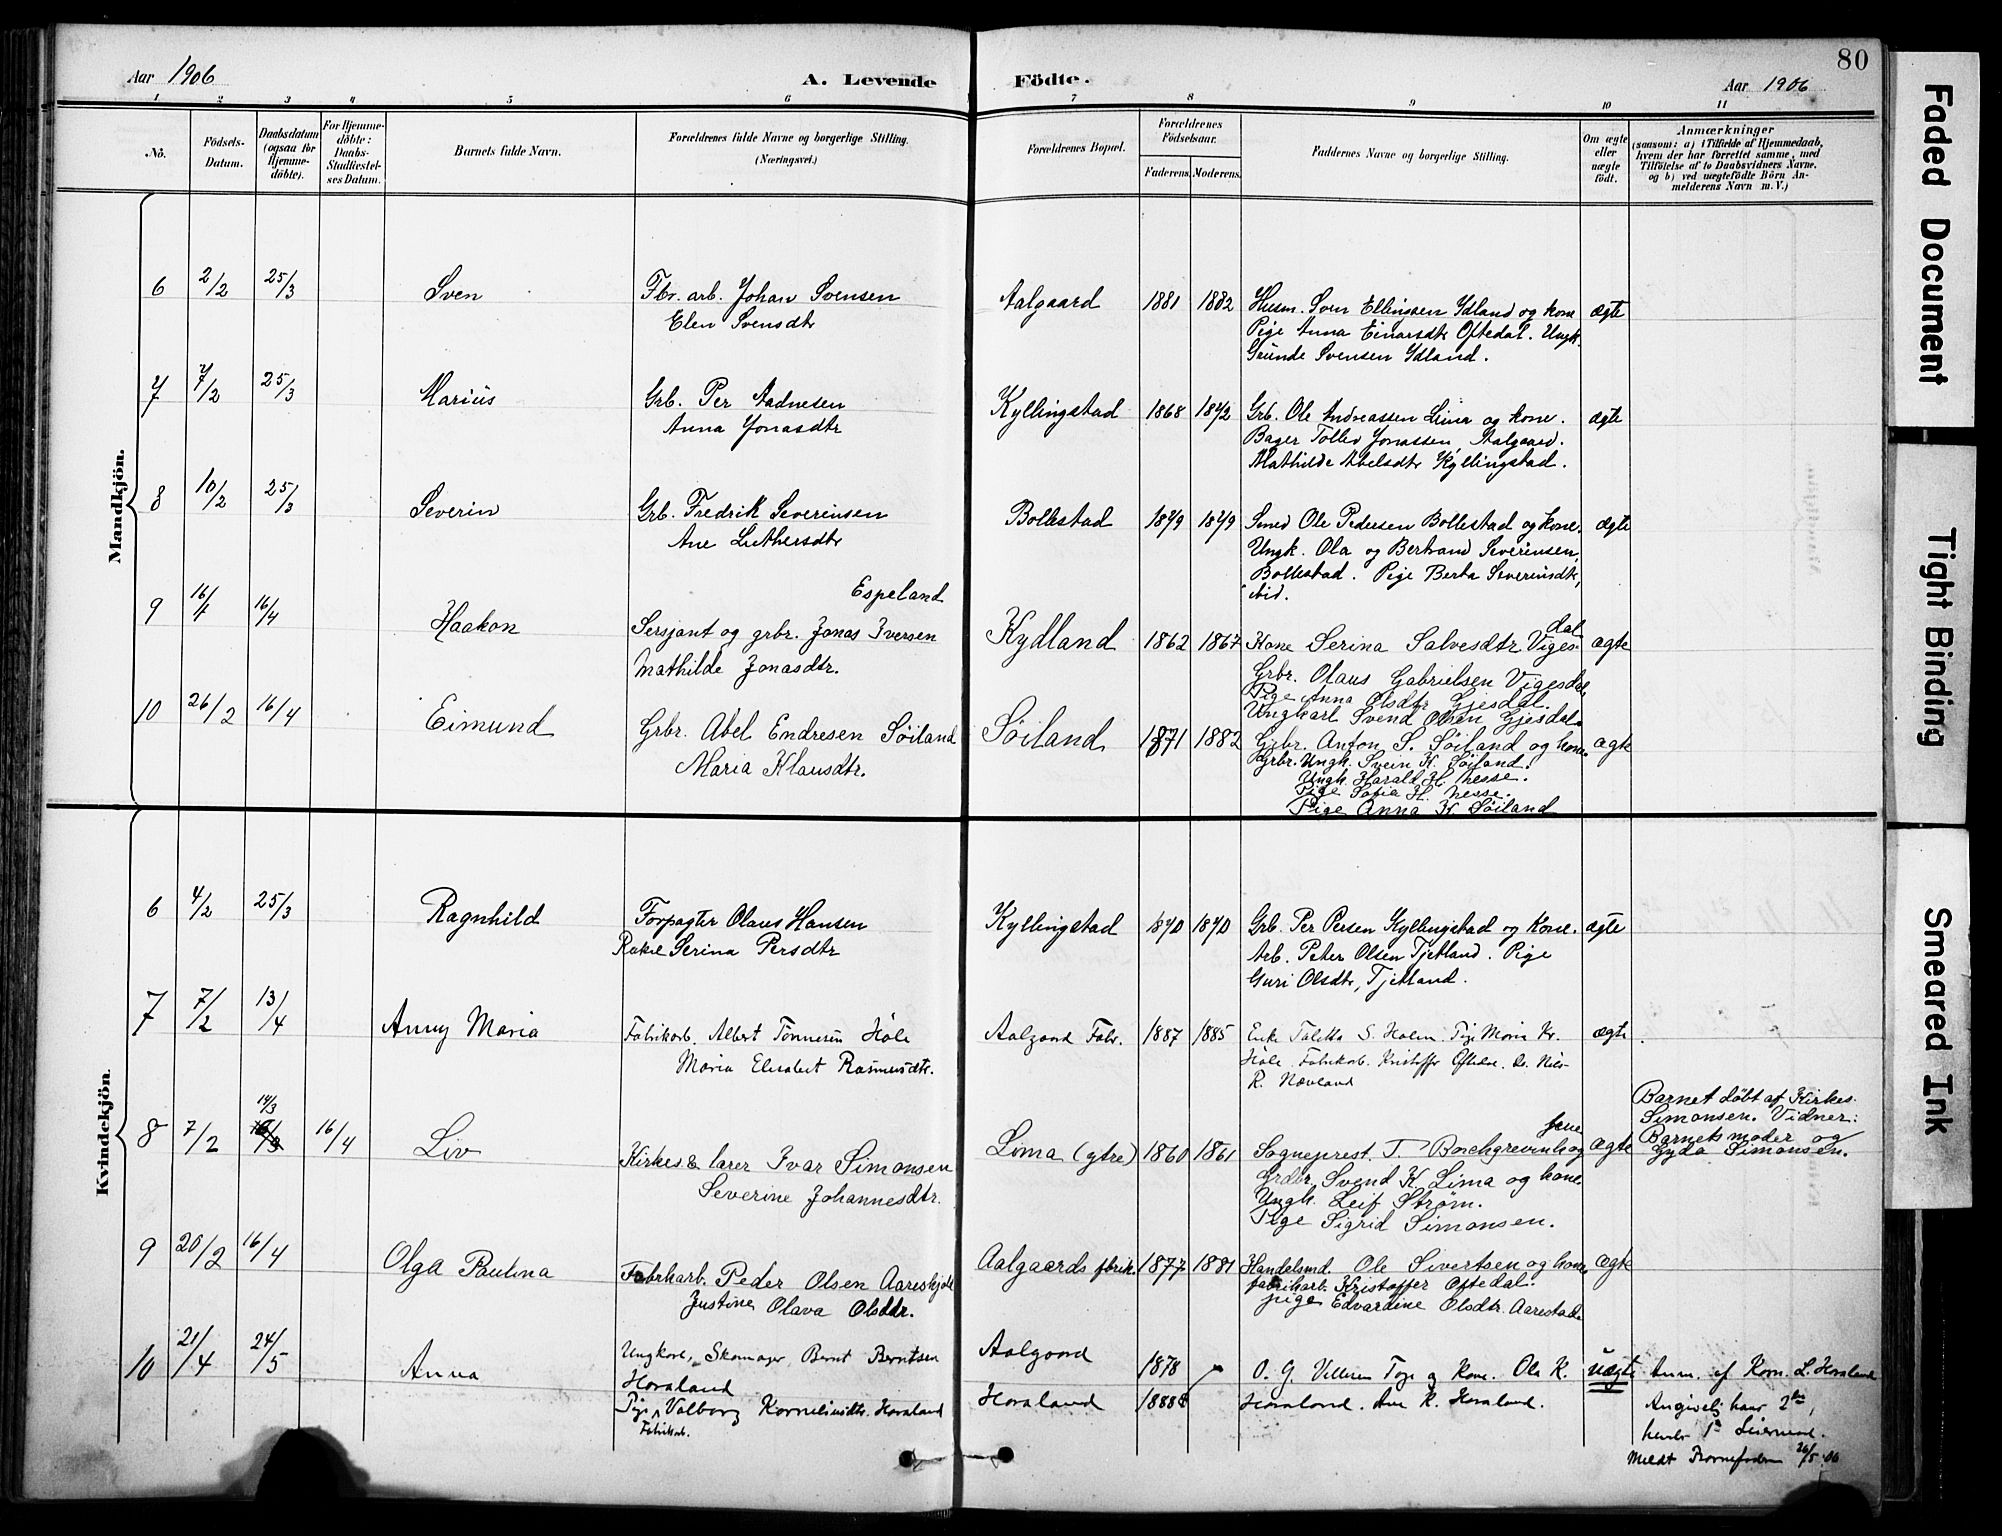 80
Aar 1906
A. Levende Födte.
Aar 1906
1 2 3 4 5 6 7 8 9 10 11
No.
Födsels-Datum.
Daabsdatum (ogsaa for Hjemme-döbte).
For Hjemme-döbte: Daabs-Stadfæstel-ses Datum.
Barnets fulde Navn.
Forældrenes fulde Navne og borgerlige Stilling. (Næringsvei.)
Forældrenes Bopæl.
Forældrenes Födselsaar.
Faderens. Moderens.
Faddernes Navne og borgerlige Stilling.
Om ægte eller uægte födt.
Anmærkninger
(saasom: a) i Tilfælde af Hjemmedaab,
hvem der har forrettet samme, med
Tilföielse af to Daabsvidners Navne.
og b) ved uægtefödte Börn An-
melderens Navn m. V.)
Mandkjön.
6 2/2 25/3 Sven Fbr. arb. Johan Svensen Aalgaard 1881 1882 Husm. Sven Ellingsen Ydland og kone ægte
Elen Svensdtr Pige Anna Einarsdtr Oftedal. Ungk.
Gunde Svensen Ydland.
7 7/2 25/3 Marius Grb. Per Aadnesen Kyllingstad 1868 1872 Grb. Ole Andreassen Lima og kone. ægte
Anna Jonasdtr Bager Tollev Jonassen, Aalgaard.
Mathilde Abelsdtr Kyllingstad.
8 10/2 25/3 Severin Grb. Fredrik Severinsen Bollestad 1879 1879 Smed Ole Pedersen Bollestad og kone. ægte
Ane Luthersdtr Ungk. Ola og Bertrand Severinsen,
Bollestad. Pige Berta Severinsdtr,
ibid.
Espeland
9 16/4 16/4 Haakon Sersjant og grbr. Jonas Iversen Kydland 1862 1867 Kone Serina Salvesdtr Vigesdal ægte
Mathilde Jonasdtr. Grbr. Olaus Gabrielsen Vigesdal
Pige Anna Olsdtr Gjesdal.
Ungkarl Svend Olsen Gjesdal.
10 26/2 16/4 Eimund Grbr. Abel Endresen Søiland Søiland 1871 1882 Grbr. Anton S. Søiland og kone. ægte
Maria Klausdtr. Grbr. Ungk. Svein K. Søiland.
Ungk. Harald H. Nesse.
Pige Sofia H. Nesse.
Pige Anna K. Søiland
Kvindekjön.
6 4/2 25/3 Ragnhild Forpagter Olaus Hansen Kyllingstad 1870 1870 Grb. Per Persen Kyllingstad og Kone. ægte
Rakel Serina Persdtr Arb. Peter Olsen Tjetland. Pige
Guri Olsdtr, Tjetland.
7 7/2 13/4 Anny Maria Fabrikarb. Albert Tønnesen Høle Aalgaard Fabr. 1887 1885 Enke Taletta S. Holm. Pige Maria Kr. ægte
Maria Elisabet Rasmusdtr. Høle. Fabrikarb. Kristoffer Oftedal. Do. Nils
R. Nævland
8 7/2 14/3 16/4 Liv Kirkes. & lærer Ivar Simonsen Lima (ytre) 1860 1861 Sogneprest T. Borchgrevink og frue ægte
Severine Johannesdtr. Grdbr. Svend K. Lima og kone.
Ungk. Leif Strøm.
Pige Sigrid Simonsen.
Barnet døbt af Kirkes.
Simonsen. Vidner:
Barnets moder og
Gyda Simonsen.
9 20/2 16/4 Olga Paulina Fabrikarb. Peder Olsen Aareskjold Aalgaards fbrik. 1877 1881 Handelsmd. Ole Sivertsen og kone ægte
Justine Olava Olsdtr. fabrikarb. Kristoffer Oftedal.
pige Edvardine Olsdtr. Aarestad
10 21/4 24/5 Anna Ungkarl, Skomager, Bernt Berntsen Aalgaard 1878 O. G. Kone. Ola K. uægte Anm. af Korn. L. Horaland
Horaland
Pige, Valborg Kornelinsdtr. Horaland Horaland 1888 Horaland. Ane K. Horaland. Angivelig hans 2den,
Fabrikarb. hendes 1ste Leiermaal.
Meldt 26/5 06
Faded Document
Tight Binding
Smeared Ink